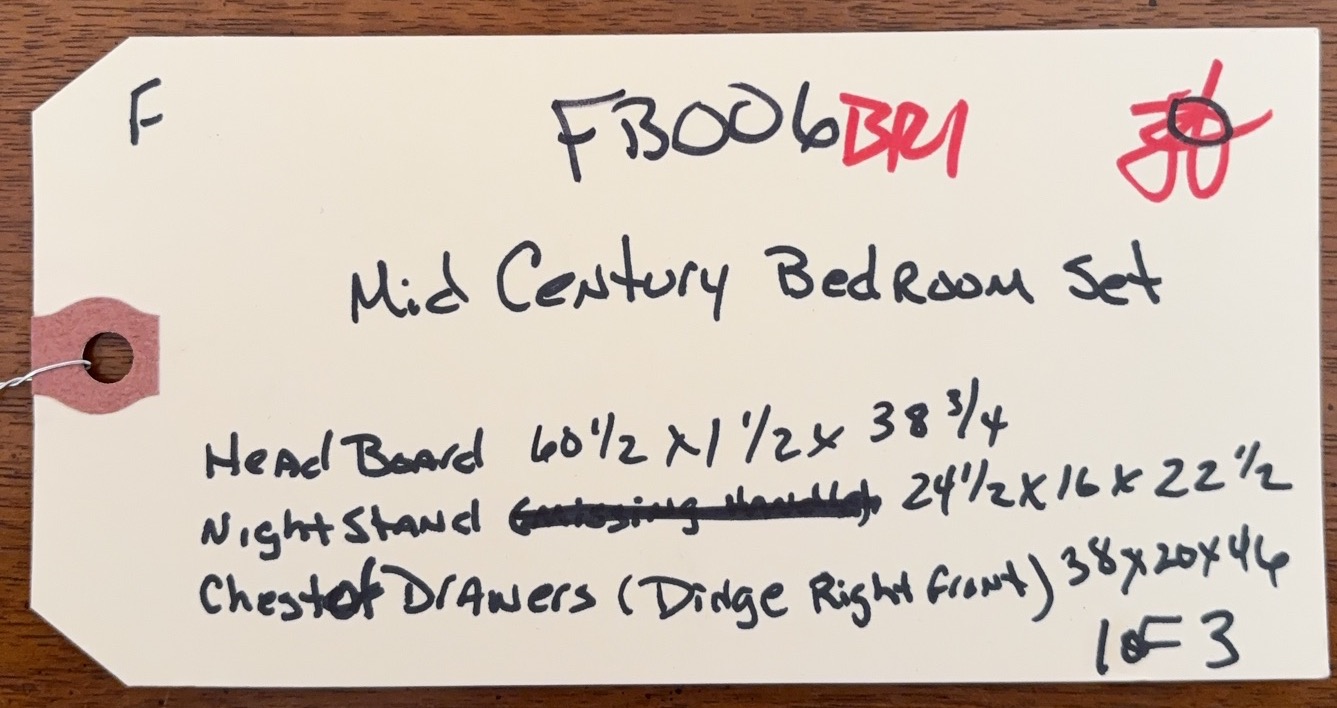 F FB006BR1
Mid Century BedRoom Set
Head Board 60 1/2 x 1 1/2 x 38 3/4
Night Stand 24 1/2 x 16 x 22 1/2
Chest of Drawers (Dinge Right front) 38 x 20 x 46
1 oF 3